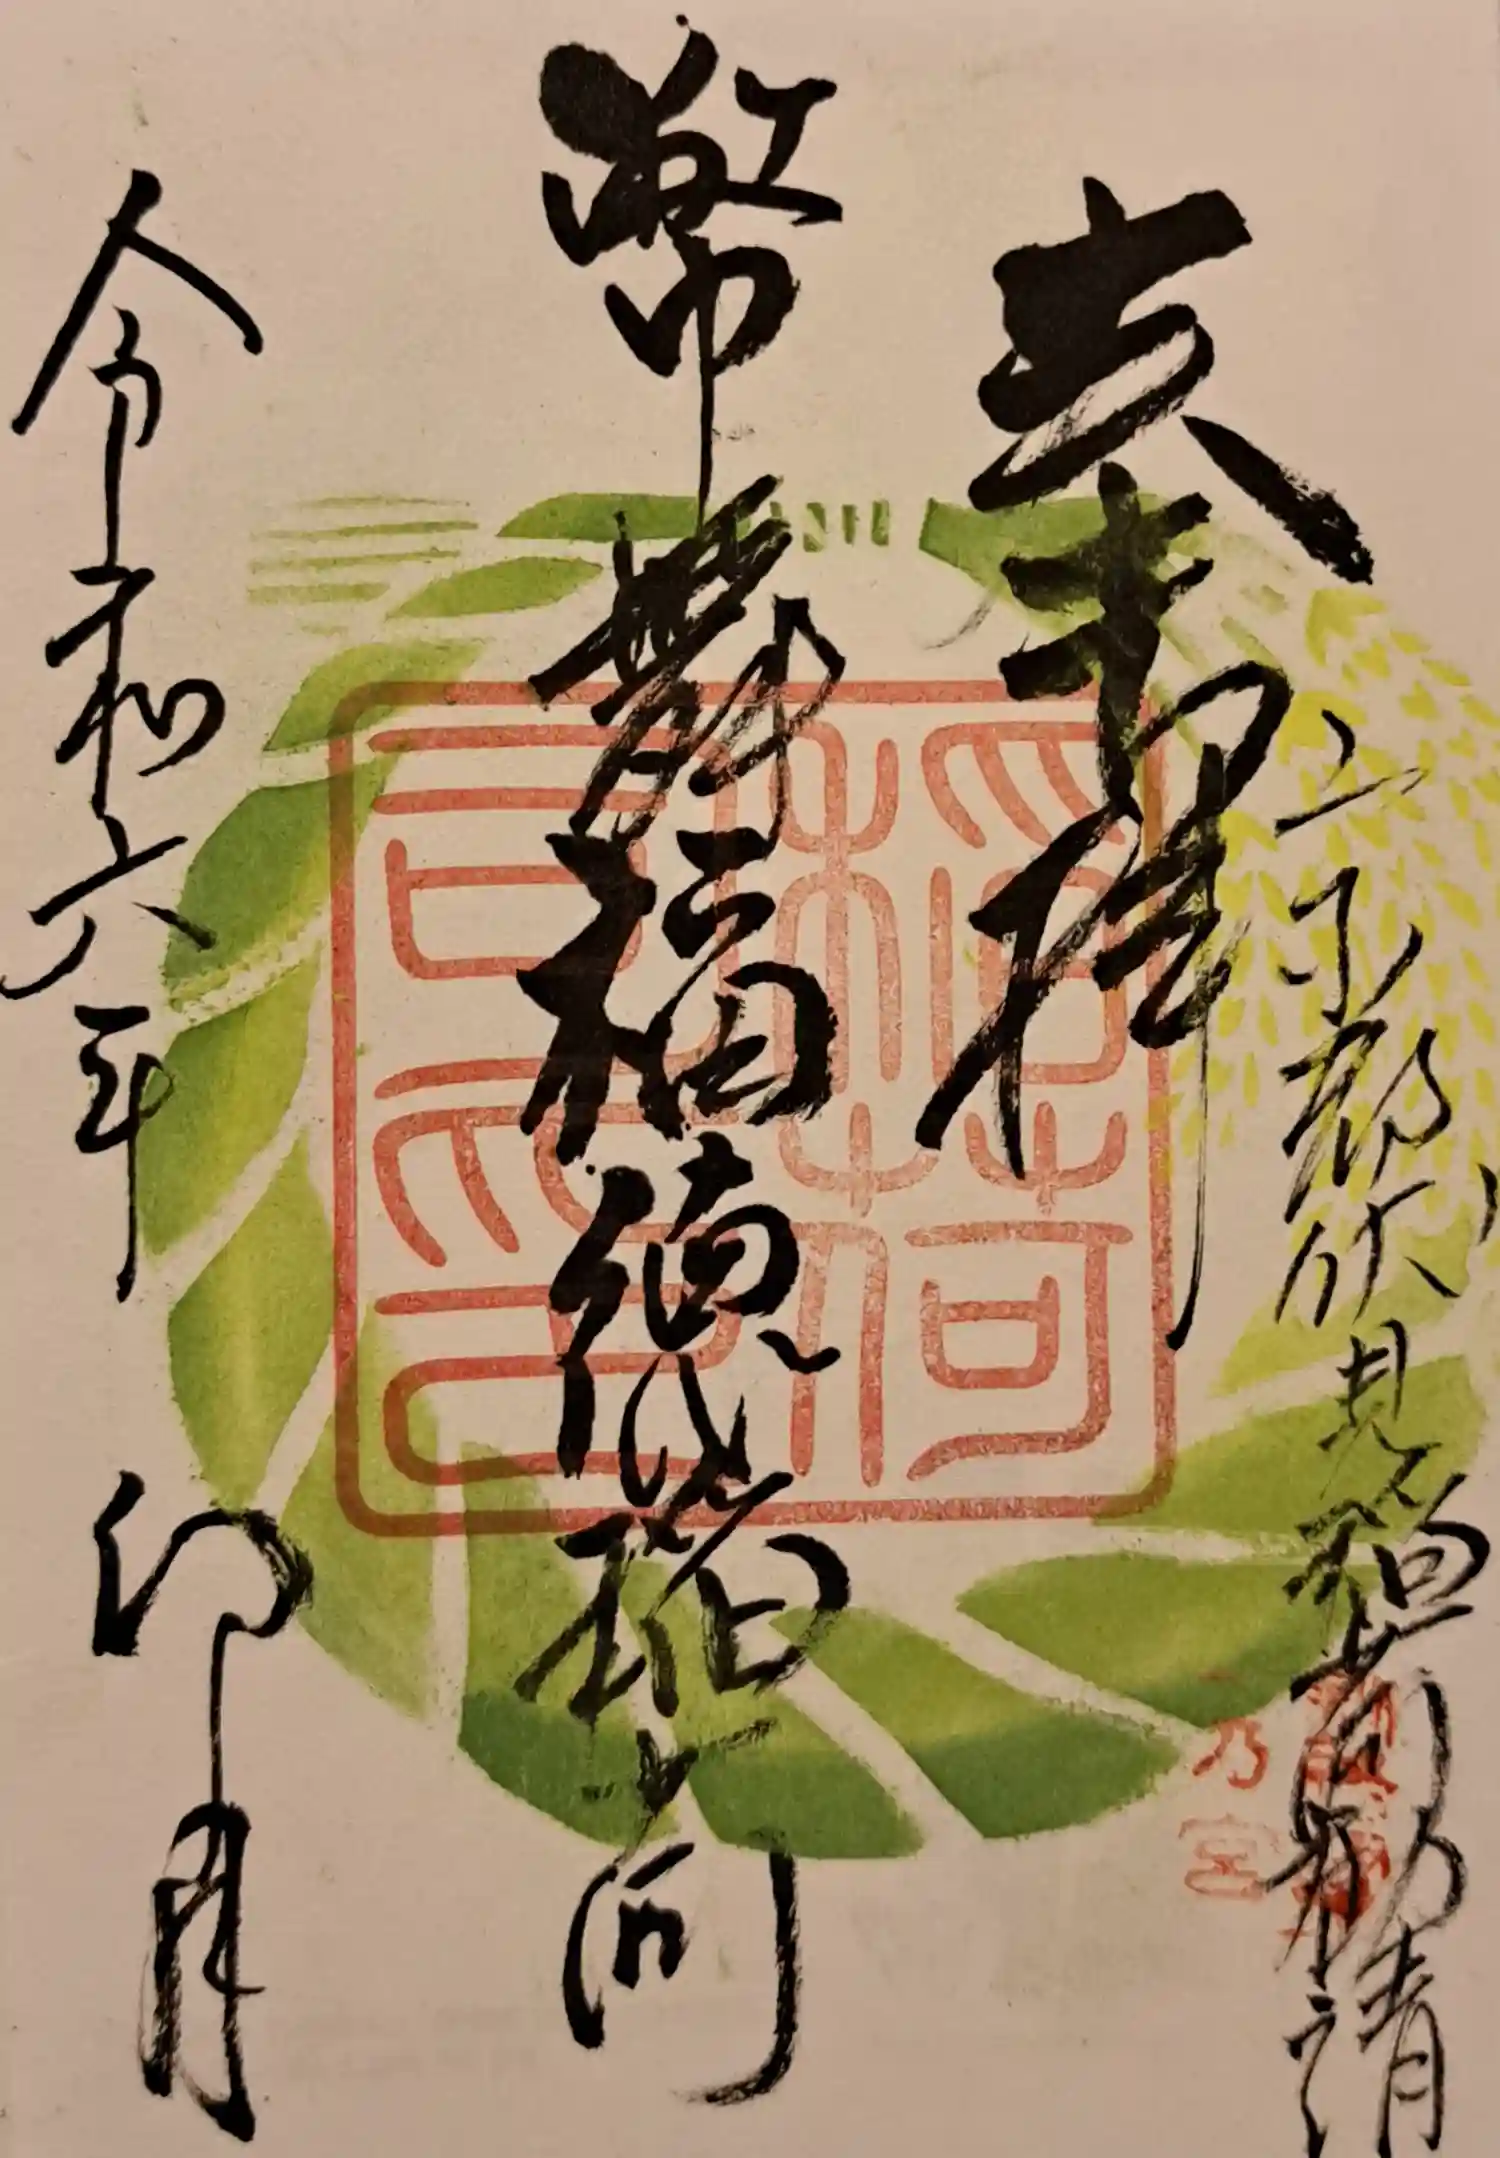 京都伏見稲荷勧請
奉拝
幣舞福徳稲荷
令和六年 卯月
乃宮